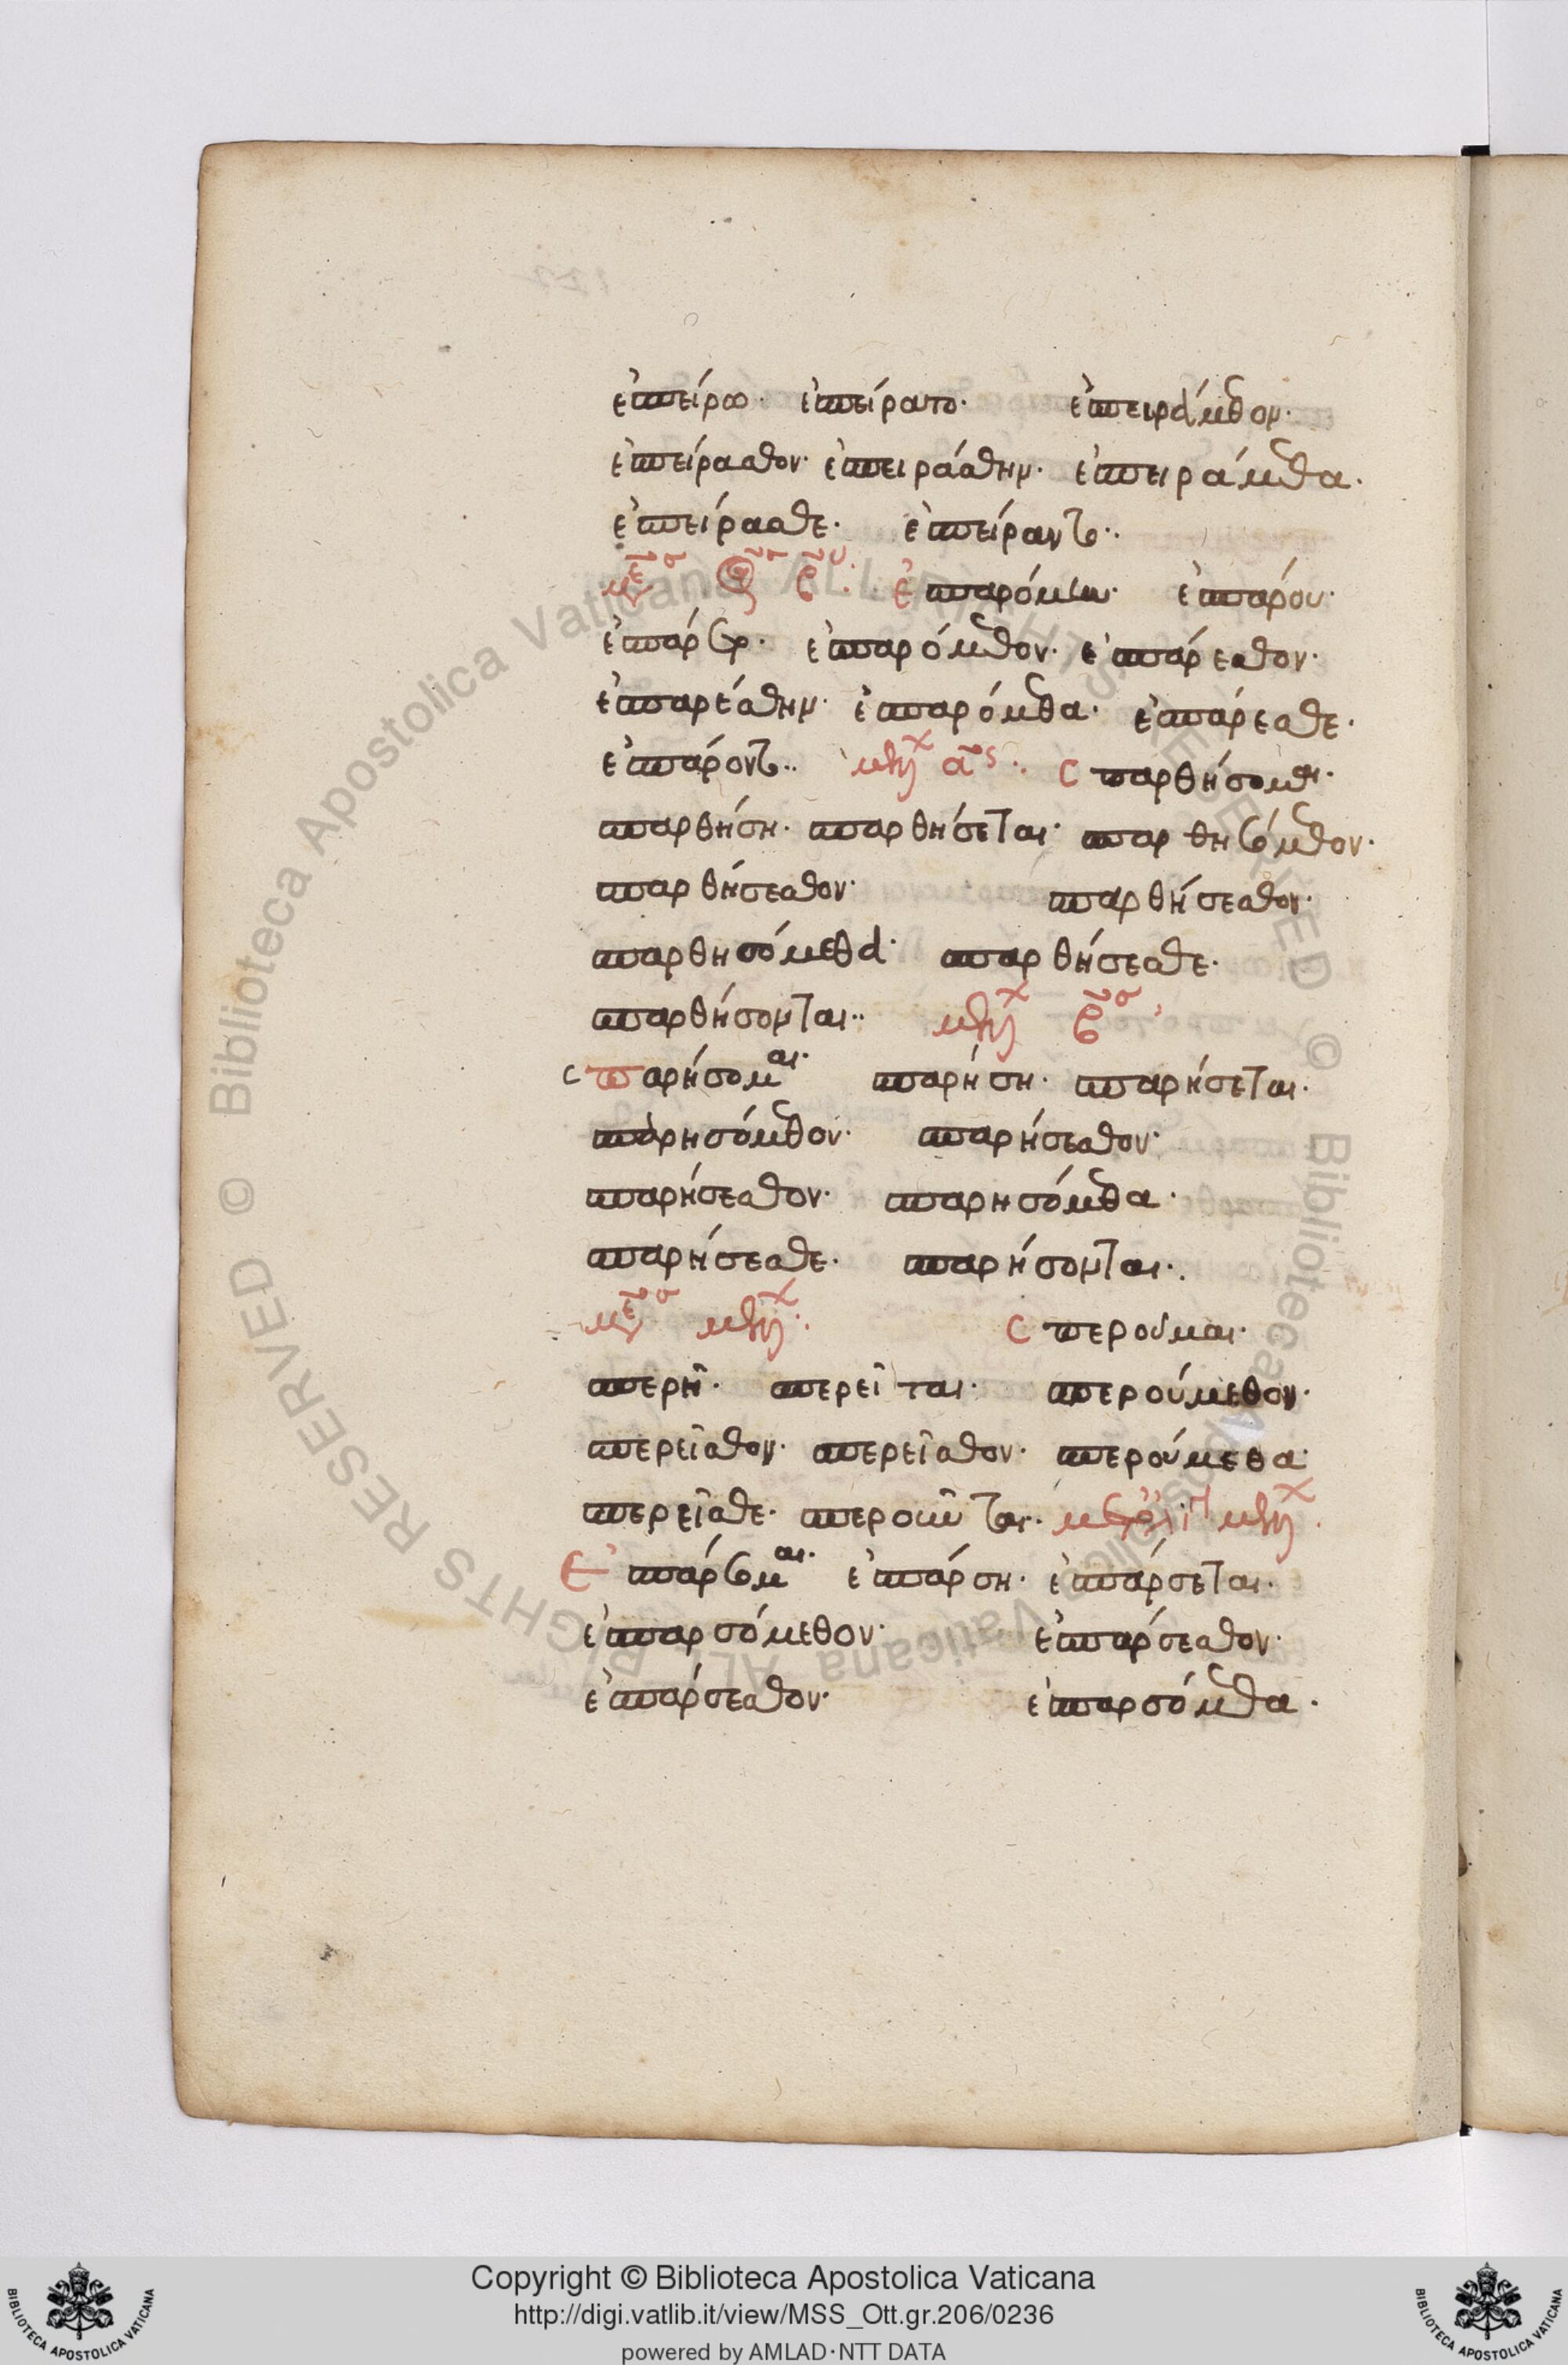 ἐσπείρω· ἐσπείρατο· ἐσπειράμεθον·
ἐσπείρασθον· ἐσπειράσθην· ἐσπειράμεθα·
ἐσπείρασθε· ἐσπείραντο··
ἐσπαρόμην· ἐσπάρου·
ἐσπάρετο· ἐσπαρόμεθον· ἐσπάρεσθον·
ἐσπαρέσθην· ἐσπαρόμεθα· ἐσπάρεσθε·
ἐσπάροντο·· μέλλ α^ος· σπαρθήσομαι·
σπαρθήση· σπαρθήσεται· σπαρθησόμεθον·
σπαρθήσεσθον· σπαρθήσεσθον·
σπαρθησόμεθα· σπαρθήσεσθε·
σπαρθήσονται·· μέλλ β^ος
σπαρήσομαι· σπαρήση· σπαρήσεται·
σπαρησόμεθον· σπαρήσεσθον·
σπαρήσεσθον· σπαρησόμεθα·
σπαρήσεσθε· σπαρήσονται··
μέσος μέλλ· σπεροῦμαι·
σπερῆ· σπερεῖται· σπερούμεθον·
σπερεῖσθον· σπερεῖσθον· σπερούμεθα·
σπερεῖσθε· σπεροῦνται· μετ' ὀλί μέλλ·
ἐσπάρσομαι· ἐσπάρση· ἐσπάρσεται·
ἐσπαρσόμεθον· ἐσπάρσεσθον·
ἐσπάρσεσθον· ἐσπαρσόμεθα·
© Biblioteca Apostolica Vaticana ALL RIGHTS RESERVED © Biblioteca Apostolica Vaticana ALL RIGHTS RESERVED
Copyright © Biblioteca Apostolica Vaticana
http://digi.vatlib.it/view/MSS_Ott.gr.206/0236
powered by AMLAD·NTT DATA
BIBLIOTECA APOSTOLICA VATICANA
BIBLIOTECA APOSTOLICA VATICANA